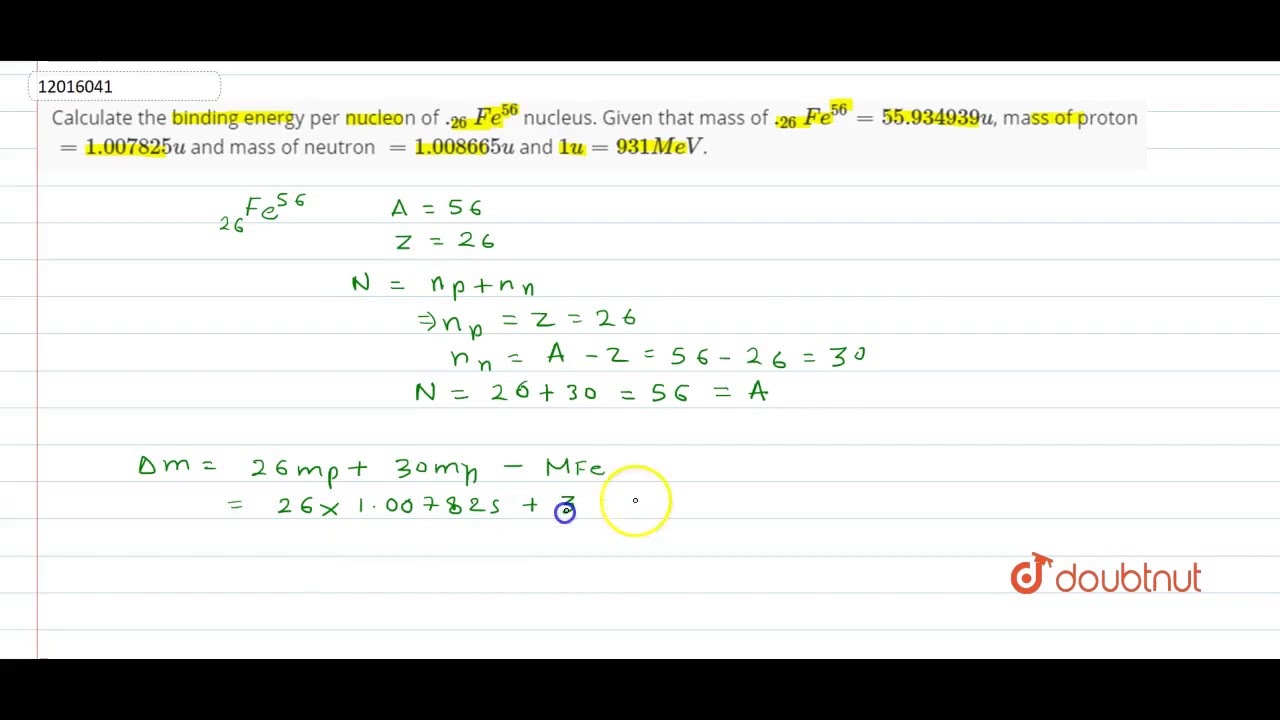 12016041
Calculate the binding energy per nucleon of .₂₆Fe⁵⁶ nucleus. Given that mass of .₂₆Fe⁵⁶ = 55.934939u, mass of proton
= 1.007825u and mass of neutron = 1.008665u and 1u = 931MeV.
₂₆Fe⁵⁶ A = 56
Z = 26
N = nₚ + nₙ
⇒ nₚ = Z = 26
nₙ = A - Z = 56 - 26 = 30
N = 26 + 30 = 56 = A
Δm = 26mₚ + 30mₙ - MFe
= 26 × 1.007825 + 3
doubtnut